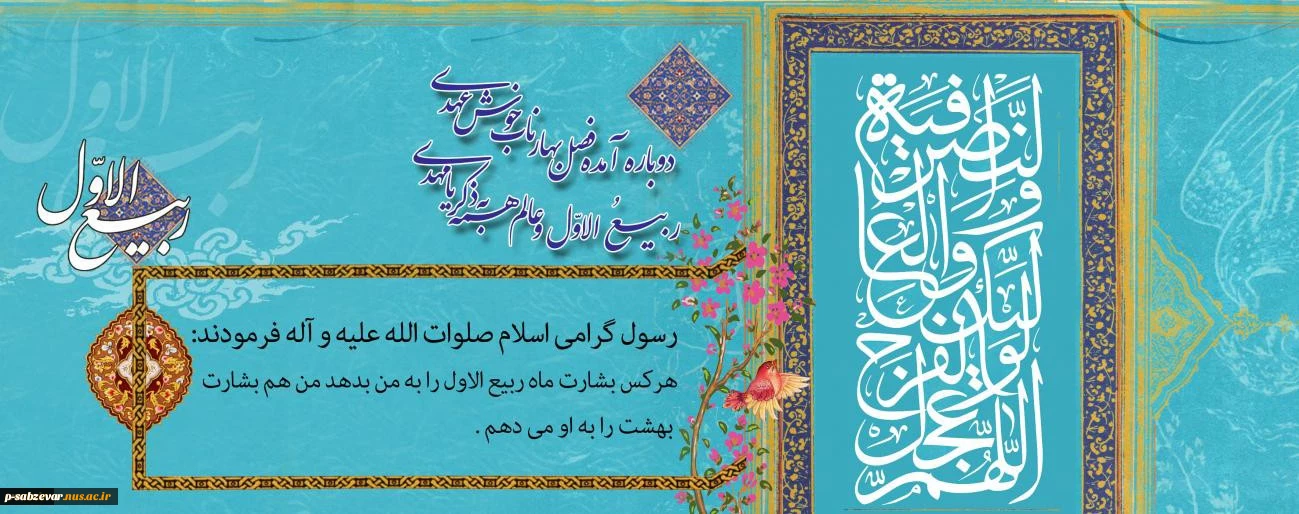 دوباره آمده فصل بهار ناب خوش عهدی
ربیعُ الاوّل و عالم همه به ذکر یا مهدی
ربیع الاوّل
رسول گرامی اسلام صلوات الله علیه و آله فرمودند:
هرکس بشارت ماه ربیع الاول را به من بدهد من هم بشارت
بهشت را به او می دهم .
اللّهم عجّل لولیّک الفرج
والعافیة والنّصر
ربیع الاوّل
p-sabzevar.nus.ac.ir